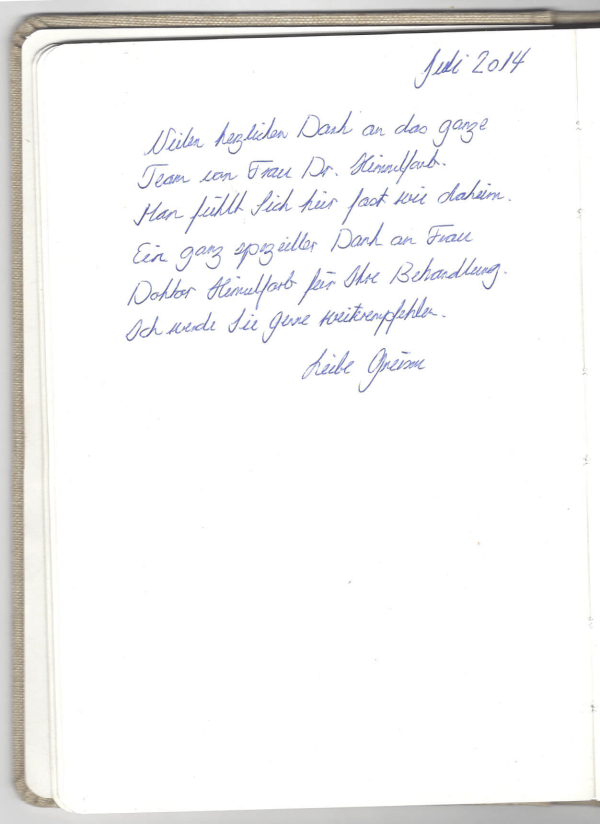 Juli 2014
Vielen herzlichen Dank an das ganze
Team von Frau Dr. Himmelfarb.
Man fühlt sich hier fast wie daheim.
Ein ganz spezieller Dank an Frau
Doktor Himmelfarb für Ihre Behandlung.
Ich werde Sie gerne weiterempfehlen.
Liebe Grüsse